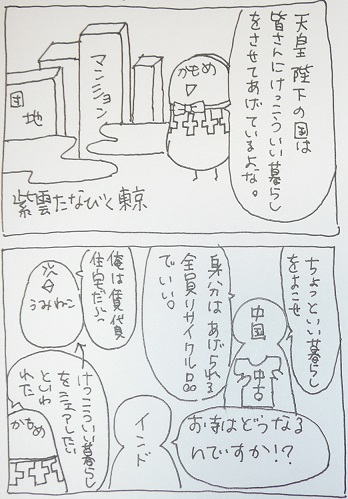 天皇陛下の国は
皆さんにけっこういい暮らし
をさせてあげているよな。
かもめ
マンション
団地
紫雲たなびく東京
ちょっといい暮らし
をよこせ
中国
中古
身分はあげられる
全員リサイクル品
でいい。
俺は賃貸
住宅だぶっ
うみねこ
お寺はどうなる
んですか!?
インド
けっこういい暮らし
をシェアしたい
といわ
れた
かもめ